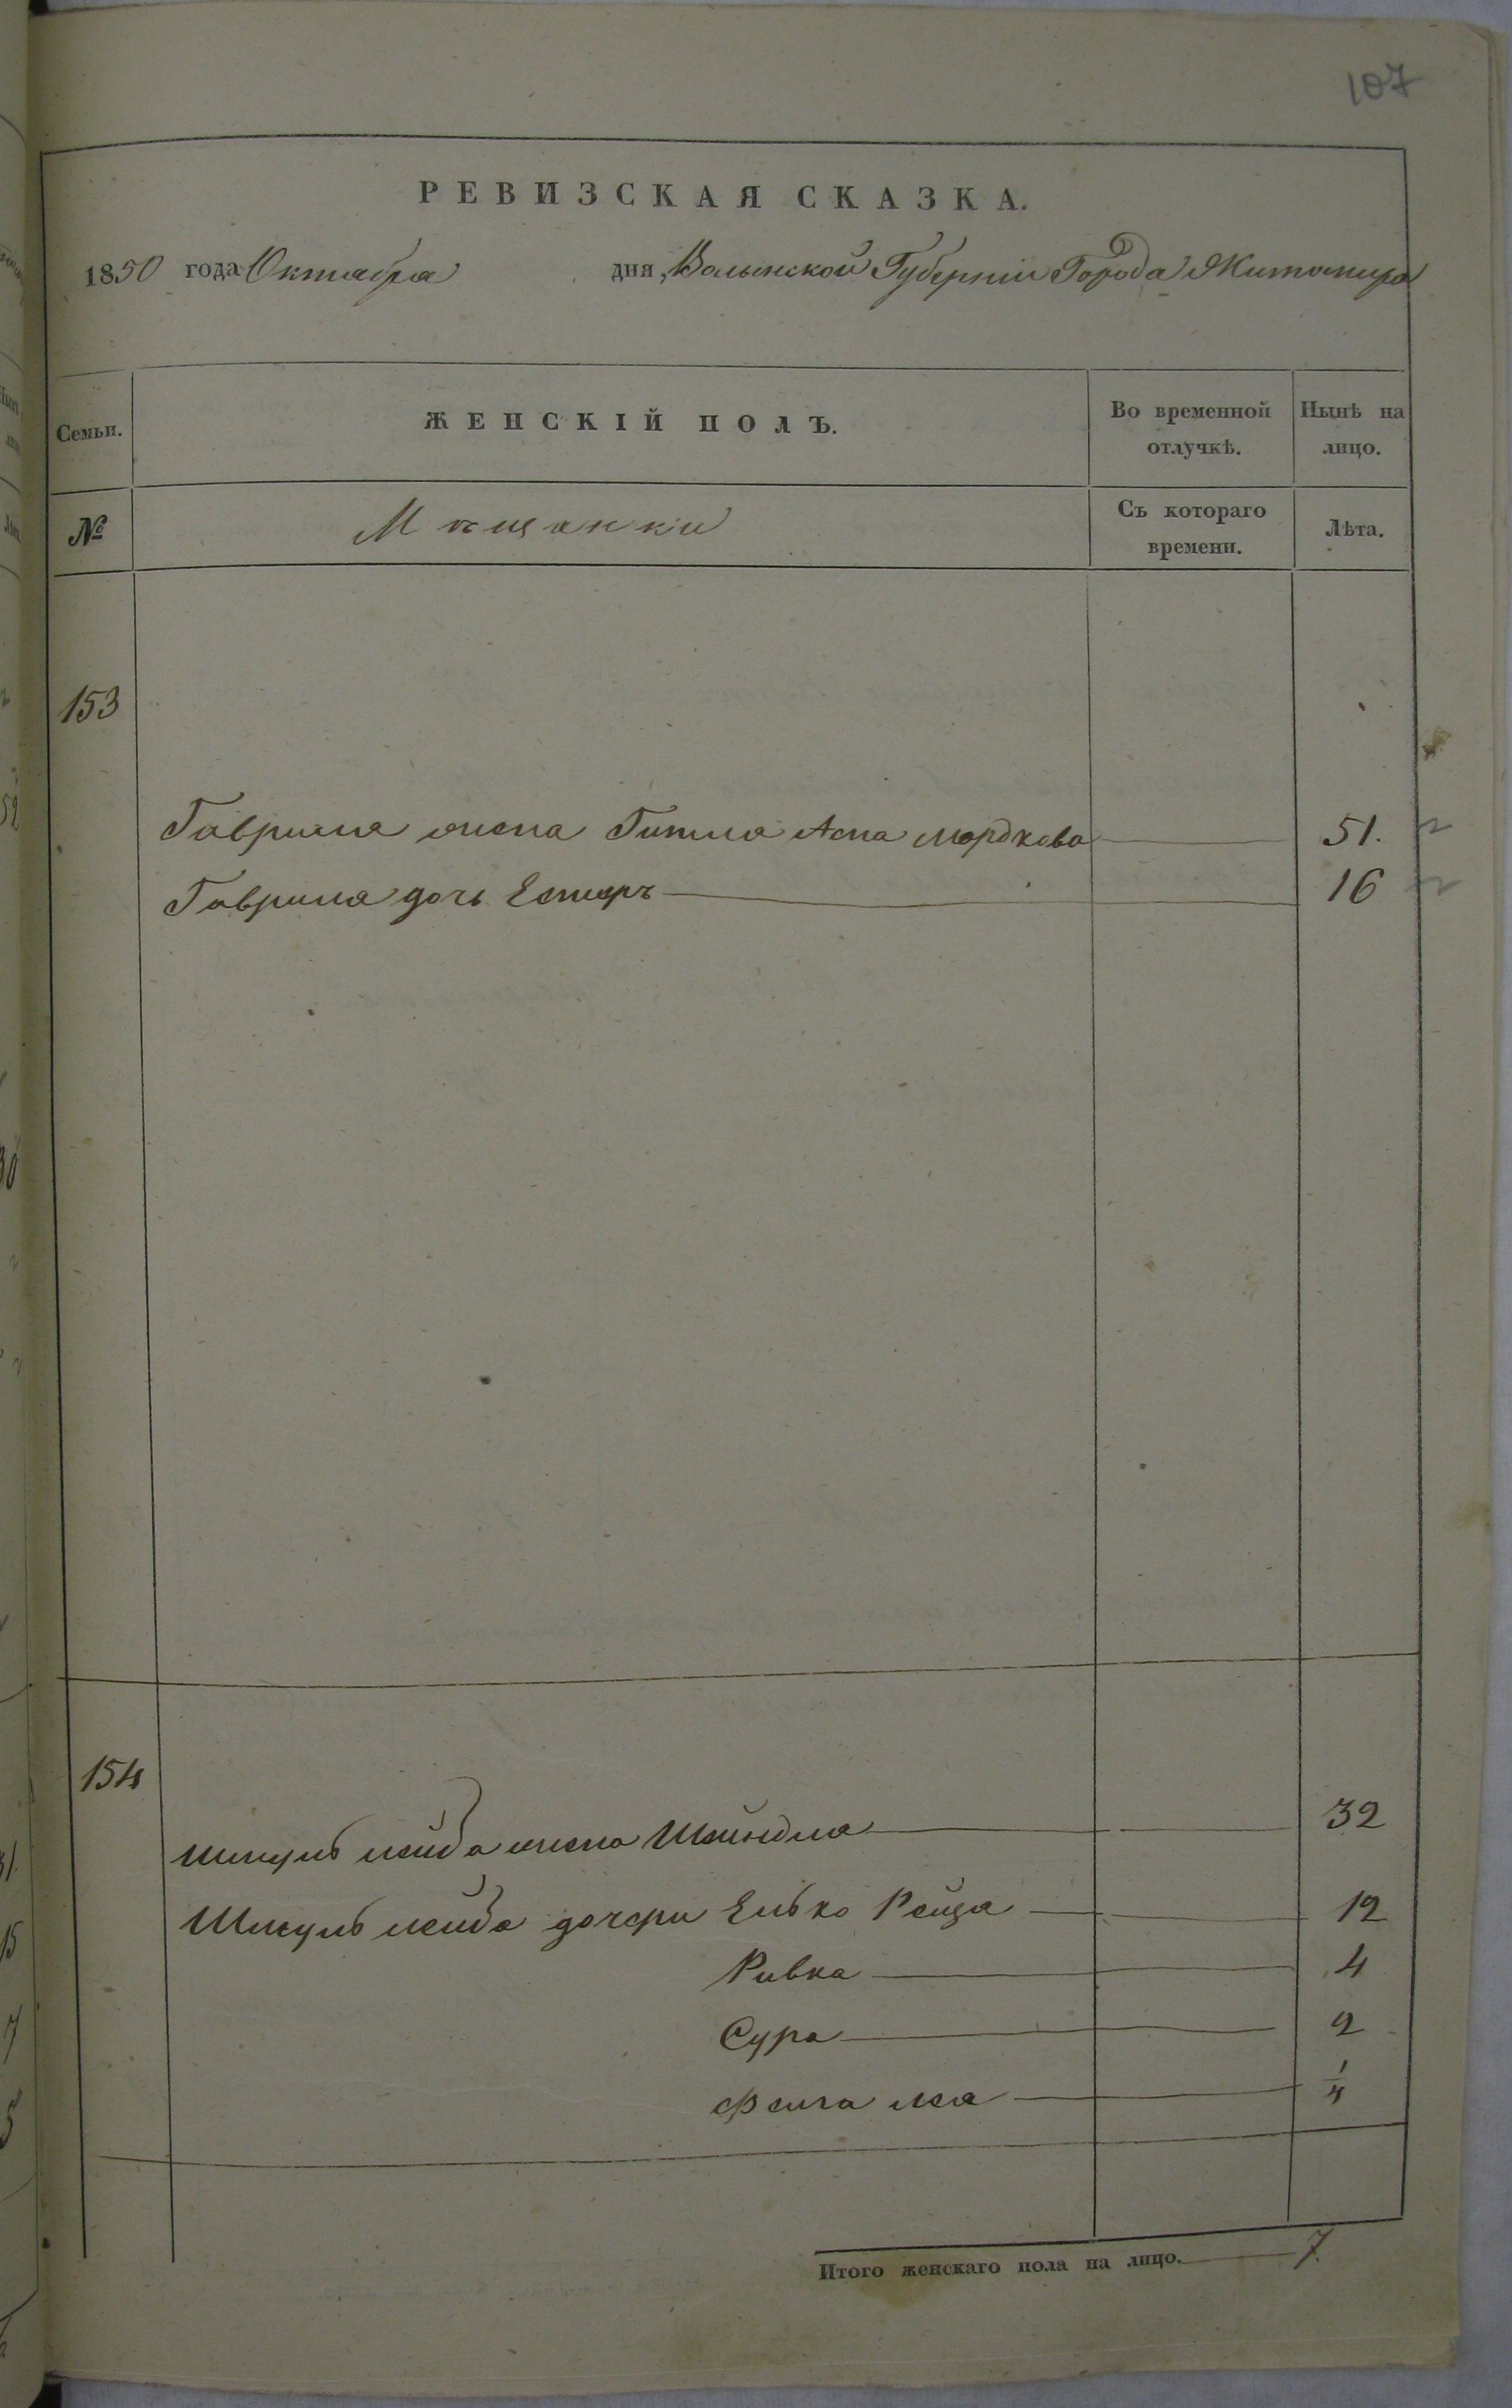 107
РЕВИЗСКАЯ СКАЗКА.
1850 года Октября дня, Волынской Губерніи Города Житомира
Семьи. ЖЕНСКІЙ ПОЛЪ. Во временной отлучкѣ. Нынѣ на лицо.
№ Мѣщанки Съ котораго времени. Лѣта.
153
Гаврила жена Гитля Асна Мордкова 51.
Гаврила дочь Естеръ 16
154
Шмуль лейба жена Шейндля 32
Шмуль лейба дочери Елька Рейца 12
Ривка 4
Сура 2
Фейга лея 1/4
Итого женскаго пола на лицо. 7.